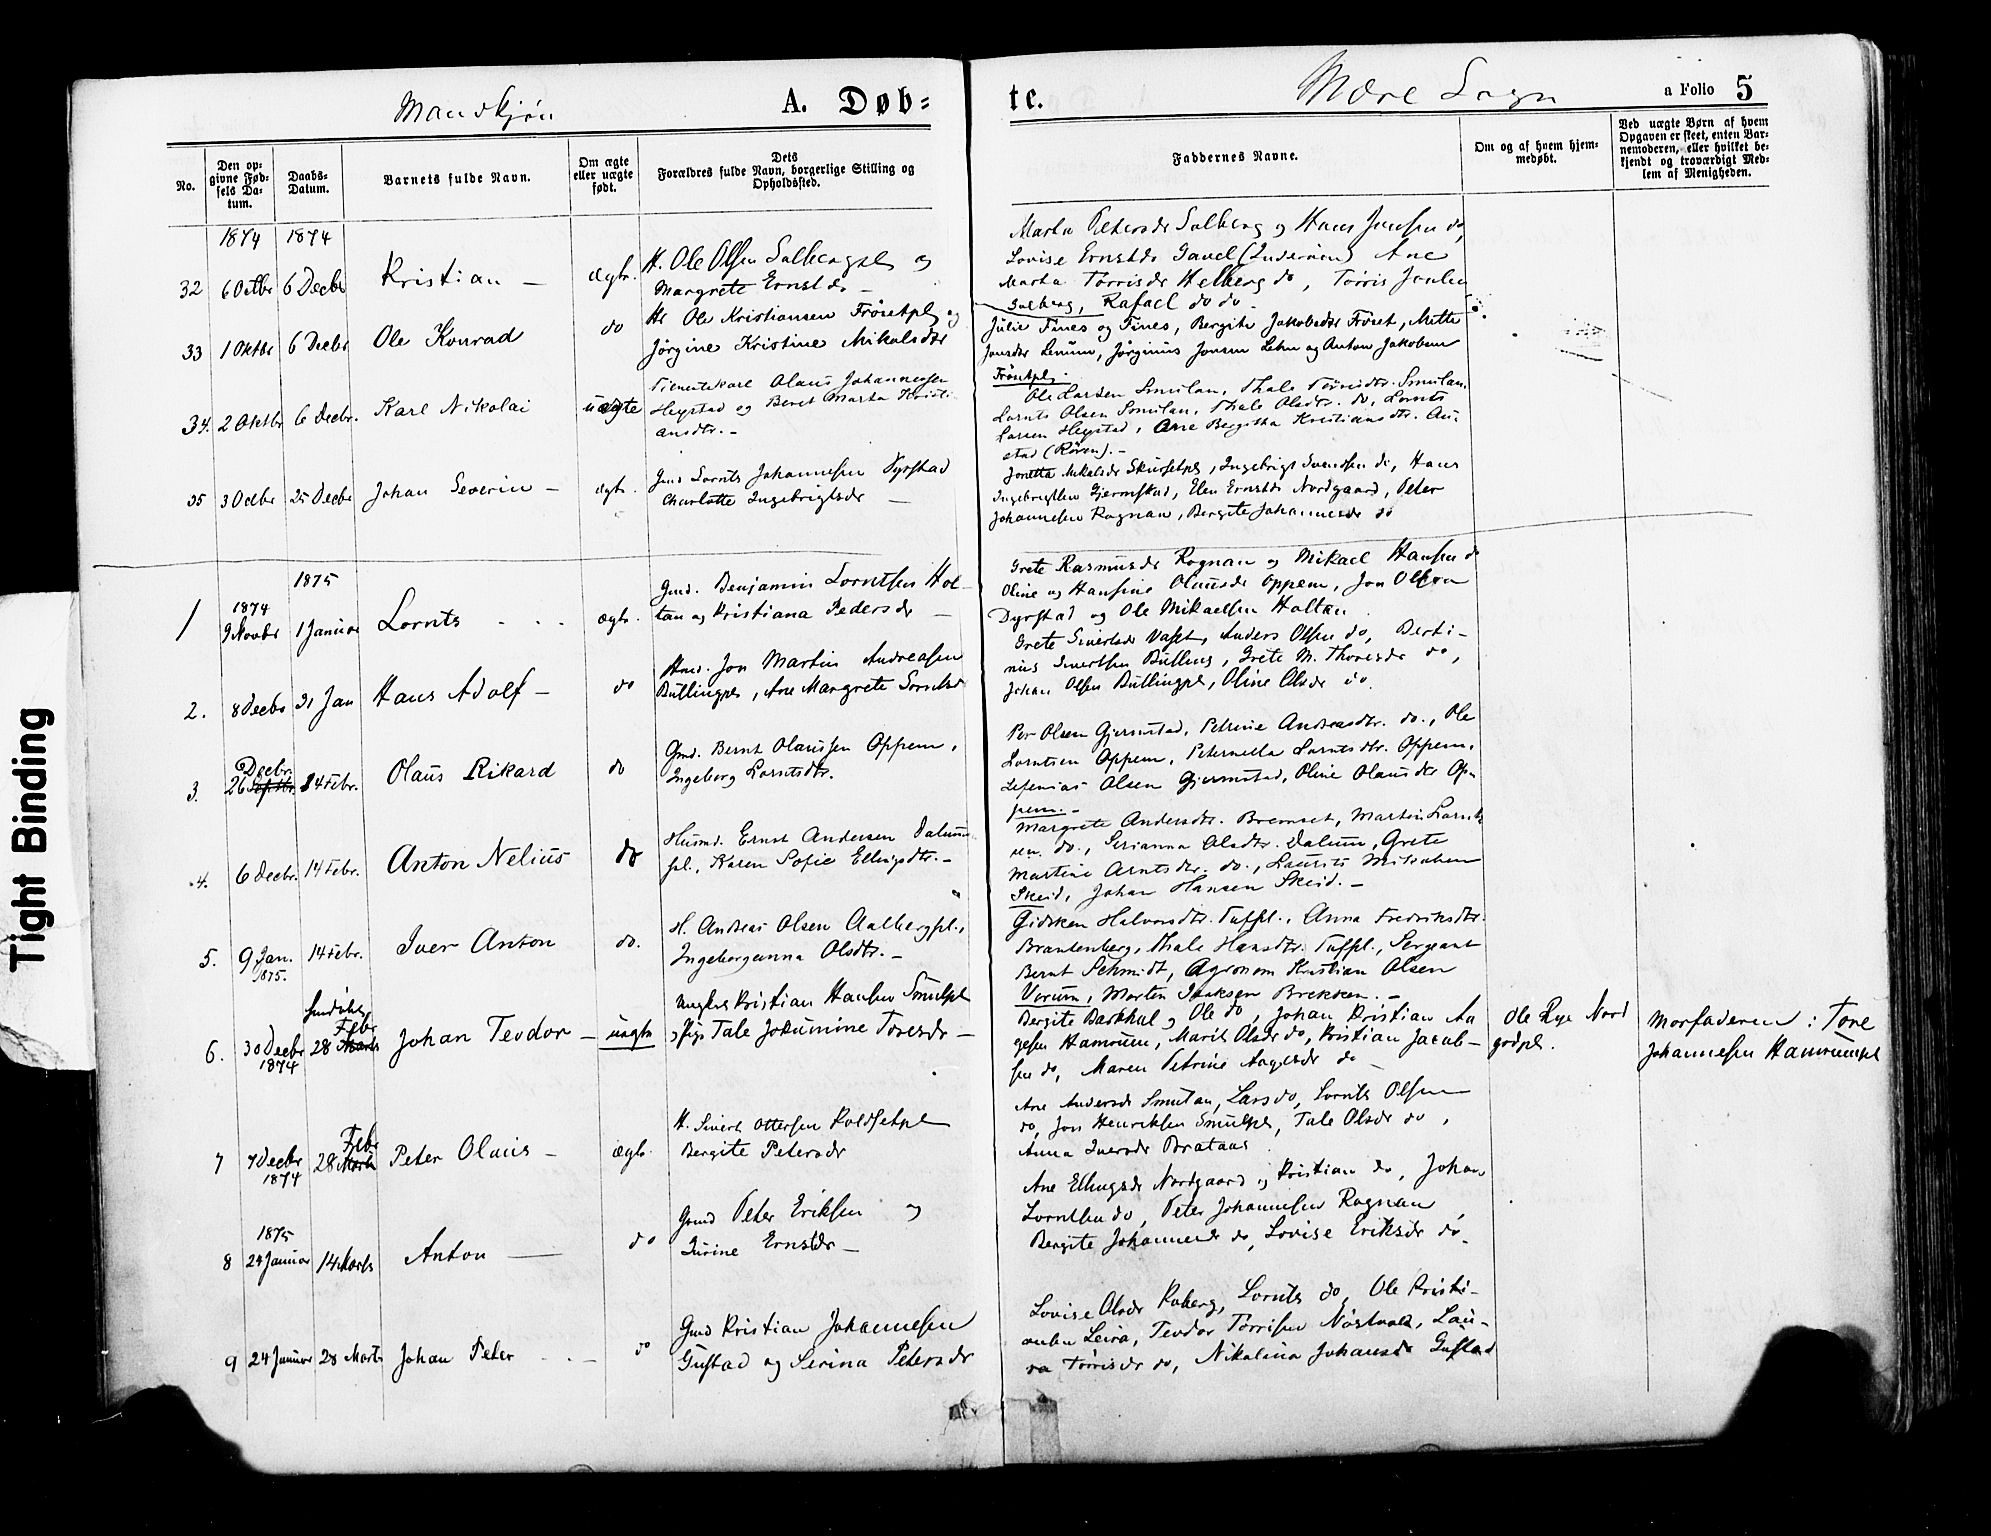 Mandkjøn
A. Døb=
te.
Mære Sogn
a Folio 5
No.
Den op=
givne Fød=
sels Da=
tum.
Daabs=
Datum.
Barnets fulde Navn.
Om ægte
eller uægte
født.
Dets
Forældres fulde Navn, borgerlige Stilling og
Opholdssted.
Faddernes Navne.
Om og af hvem hjem=
medøbt.
Ved uægte Børn af hvem
Opgaven er skeet, enten Bar=
nemoderen, eller hvilket be=
kjendt og troværdigt Med=
lem af Menigheden.
1874 1874
32 6 Octbr 6 Decbr Kristian — ægte.
H. Ole Olsen Salbergpl og
Margrete Ernstdr —
Marta Petersdr Salberg og Hans Jensen do,
Lovise Ernstdr Gavel (Inderøen) Ane
Marta Tørrisdr Helberg do, Tørris
Salberg, Rafael do do.
33 1 Oktbr 6 Decbr Ole Konrad do
H. Ole Kristiansen Frösetpl og
Jørgine Kristine Mikalsdtr
Julie Fines og Fines, Bergite Jakobsdtr Fröset, Mette
Jonsdtr Lenum, Jørginus Jonsen Lehn og Anton Jakobsen
Frösetpl.
34. 2 Oktbr 6 Decbr. Karl Nikolai uægte
Tjenestekarl Olaus Johannessen
Hegstad og Beret Marta Kristi-
ansdtr. -
Ole Larsen Smulan, Thale Tørrisdtr. Smulan.
Lornts Olsen Smulan, Thale Olsdtr. do, Lornts
Larsen Hegstad, Ane Bergitha Kristiansdtr. Au-
stad (Røren). -
35 3 Octbr 25 Decbr Johan Severin — ægte.
Gmd Lornts Johannesen Dyrstad
Charlotte Ingebrigtsdr —
Jonetta Mikalsdr Skursetpl, Ingebrigt Svendsen do, Hans
Ingebrigtsen Gjermstad, Elen Ernstdr Nordgaard, Peter
Johannesen Rognan, Bergite Johannesdr do
1875
1874
1 9 Novbr 1 Januar Lornts - - ægte.
Gmd. Benjamin Lorntsen Hol-
tan og Kristiana Pedersdr —
Grete Rasmusdr Rognan og Mikael Hansen do
Oline og Hansine Olausdr Oppem, Jon Olsen
Dyrstad og Ole Mikaelsen Holtan
2. 8 Decbr 31 Jan Hans Adolf — do
Hmd. Jon Martin Andreasen
Bullingpl, Ane Margrete Lorntsdr
Grete Sivertsdr Vaset, Anders Olsen do, Berti-
nus Sivertsen Bullung, Grete M. Thoresdr do,
Johan Olsen Bullingpl, Oline Olsdr do.
3. 26 Decbr. Septbr. 14 Febr. Olaus Rikard do
Gmd. Bernt Olaussen Oppem,
Ingeborg Lorntsdtr.
Per Olsen Gjermstad, Petrine Andreasdtr. do., Ole
Lorntsen Oppem, Peternella Lorntsdtr. Oppem,
Zefanias Olsen Gjermstad, Oline Olausdtr Op-
pem. -
4. 6 Decbr. 14 Febr. Anton Nelius do
Husmd. Ernst Andersen Dalum-
pl., Karen Sofie Ellingsdtr. -
Margrete Andersdtr. Bremset, Martin Lornt-
sen do., Serianna Olsdtr. Dalum, Grete
Martine Arntsdtr. do., Laurits Mikalsen
Skeid, Johan Hansen Skeid. -
5. 9 Jan. 1875. 14 Febr. Iver Anton do.
H. Andreas Olsen Aalbergpl.,
Ingeborganna Olsdtr. -
Gidsken Halvorsdtr. Tufspl., Anna Fredriksdtr.
Brantenberg, Thale Hansdtr. Tufspl., Sergeant
Bernt Schmidt, Agronom Kristian Olsen
Vorum, Morten Isaksen Brekken. -
6. 30 Decbr 1874 28 Febr Marts Johan Teodor — uægte
Ungkarl Kristian Hansen Smulpl
og Pige Tale Jokumine Toresdr —
Bergite Barkhal og Ole do, Johan Kristian Aa-
gesen Hamrum, Marit Olsdr do, Kristian Jacob-
sen do, Maren Petrine Aagesdr do —
Ole Rye Nord
gdpl.
Morfaderen: Tore
Johannesen Hamrumpl
7 7 Decbr 1874 28 Febr Marts Peter Olaus — ægte.
H. Sivert Ottersen Koldsetpl
Bergite Petersdr
Ane Andersdr Smulan, Lars do, Lornts Olsen
do, Jon Henriksen Smulpl, Tale Olsdr do,
Anna Iversdr Brataas
1875
8 24 Januar 14 Marts Anton — do
Gmd Peter Eriksen og
Gurine Ernstdr —
Ane Ellingsdr Nordgaard og Kristian do, Johan
Lorntsen do, Peter Johannesen Rognan,
Bergite Johannesdr do, Lovise Eriksdr do.
9 24 Januar 28 Marts Johan Peter - - — do
Gmd Kristian Johannesen
Gustad og Serina Petersdr
Lovise Olsdr Raberg, Lornts do, Ole Kristi-
ansen Leira, Teodor Tørrisen Nøstvold, Lau-
ra Tørrisdr do, Nikolina Johansdr Gustad
Tight Binding